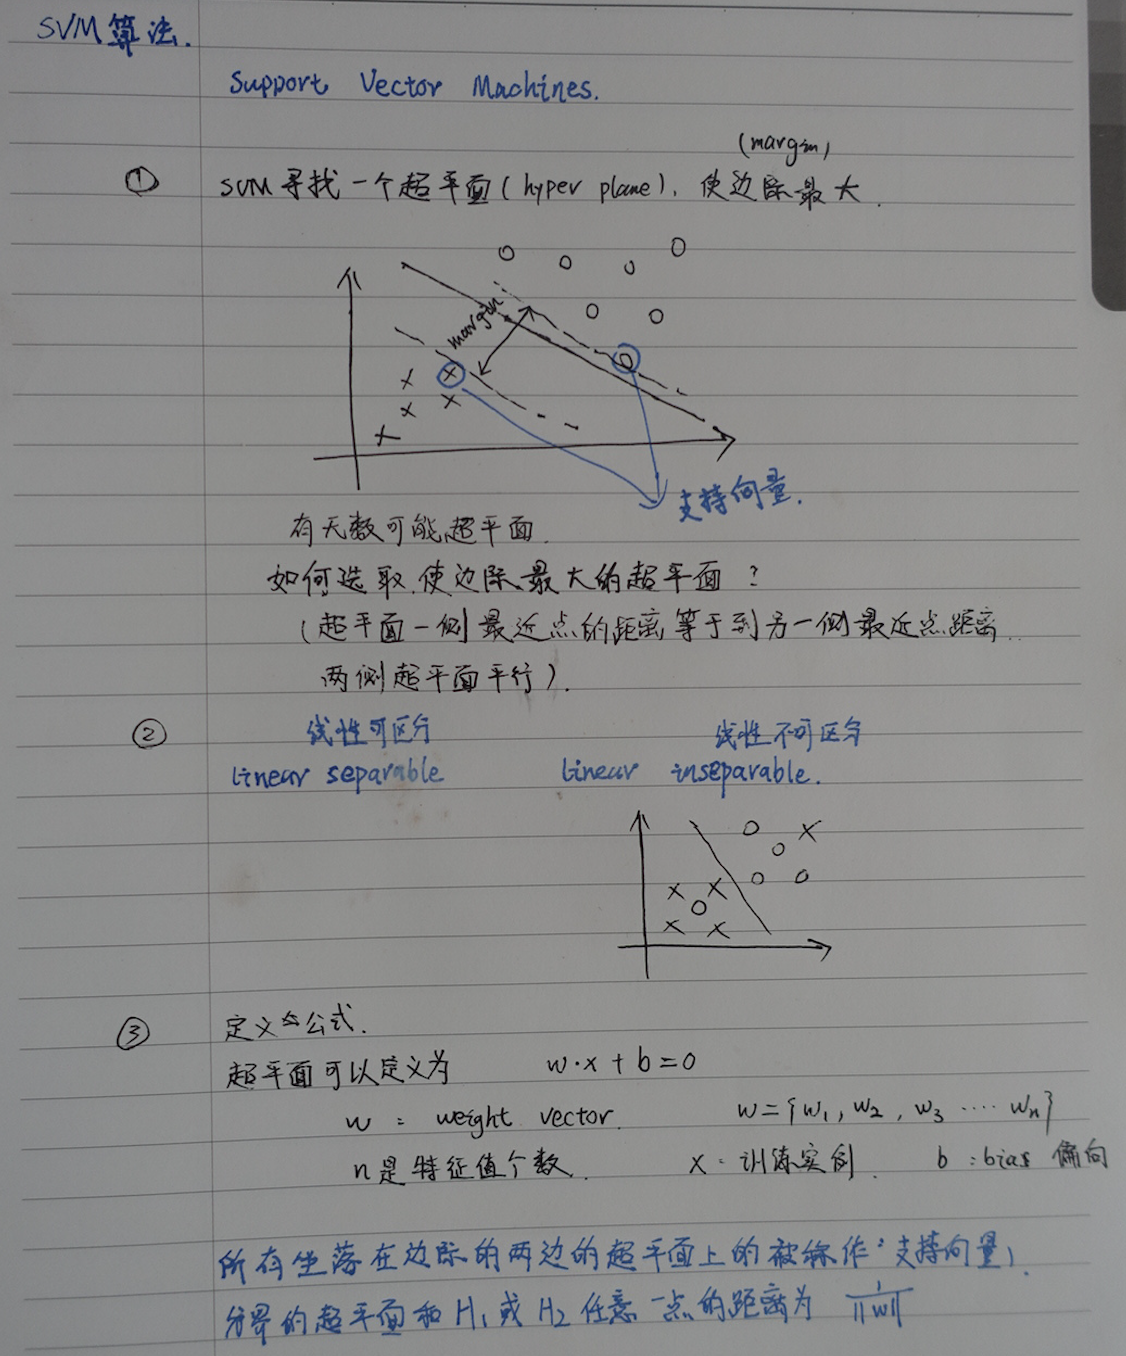 SVM算法.
Support Vector Machines.
(margin)
① SVM寻找一个超平面(hyper plane), 使边际最大.
margin
支持向量.
有无数可能超平面.
如何选取使边际最大的超平面?
(超平面一侧最近点的距离等于到另一侧最近点距离..
两侧超平面平行).
② 线性可区分 线性不可区分
linear separable linear inseparable.
③ 定义与公式.
超平面可以定义为 w·x+b=0
w : weight vector. w={w₁, w₂, w₃ ···· wₙ}
n是特征值个数. x·训练实例. b :bias 偏向
所有坐落在边际的两边的超平面上的被称作:支持向量,
分界的超平面和H₁或H₂任意一点的距离为 1/||w||